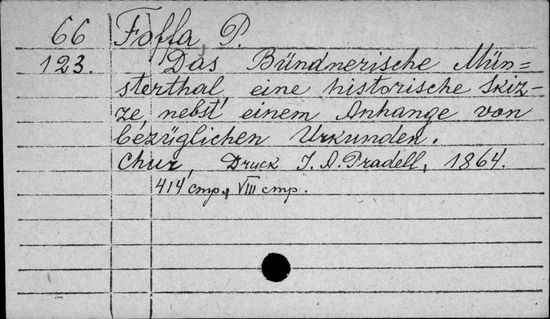 66 Foffa P.
123. Das Bündnerische Mün=
sterthal eine historische Skiz-
ze, nebst einem Anhange von
bezüglichen Urkunden.
Chur, Druck J. A. Pradell, 1864.
414 cmp., VIII cmp.